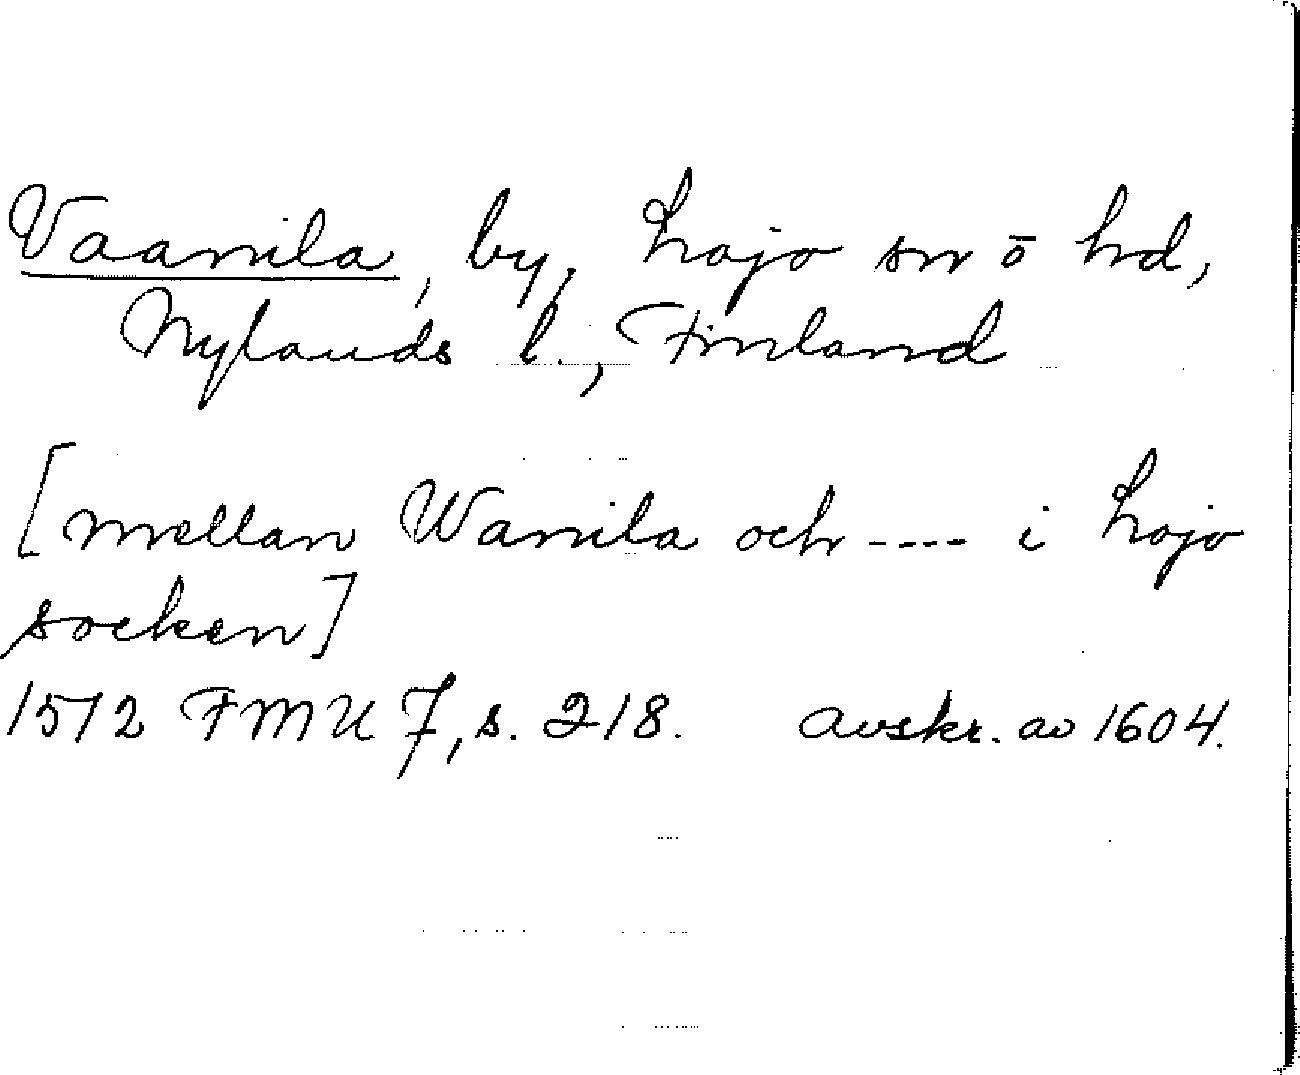 Vaanila, by, Lojo sn ō hd,
Nylands l., Finland
[mellan Wanila och ---- i Lojo
socken]
1512 FMU 7, s. 218. avskr. av 1604.